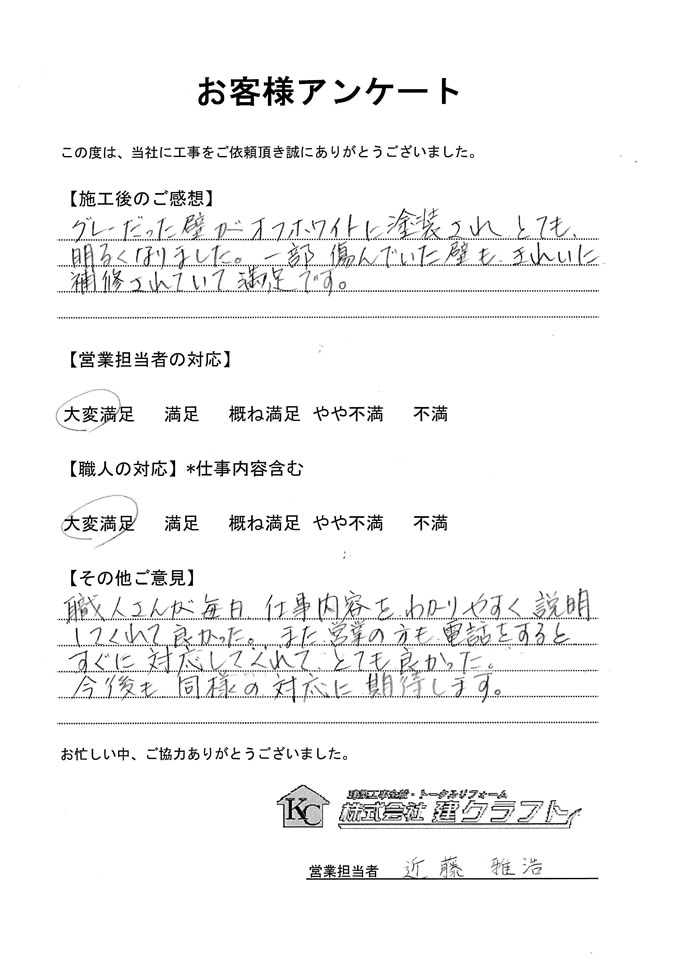 お客様アンケート
この度は、当社に工事をご依頼頂き誠にありがとうございました。
【施工後のご感想】
グレーだった壁がオフホワイトに塗装され、とても、
明るくなりました。一部傷んでいた壁も、きれいに
補修されていて満足です。
【営業担当者の対応】
大変満足 満足 概ね満足 やや不満 不満
【職人の対応】*仕事内容含む
大変満足 満足 概ね満足 やや不満 不満
【その他ご意見】
職人さんが毎日、仕事内容を、わかりやすく説明
してくれて良かった。また、営業の方も、電話をすると
すぐに対応してくれて、とても良かった。
今後も同様の対応に期待します。
お忙しい中、ご協力ありがとうございました。
建築工事全般・トータルリフォーム
KC 株式会社 建クラフト
営業担当者 近藤 雅浩